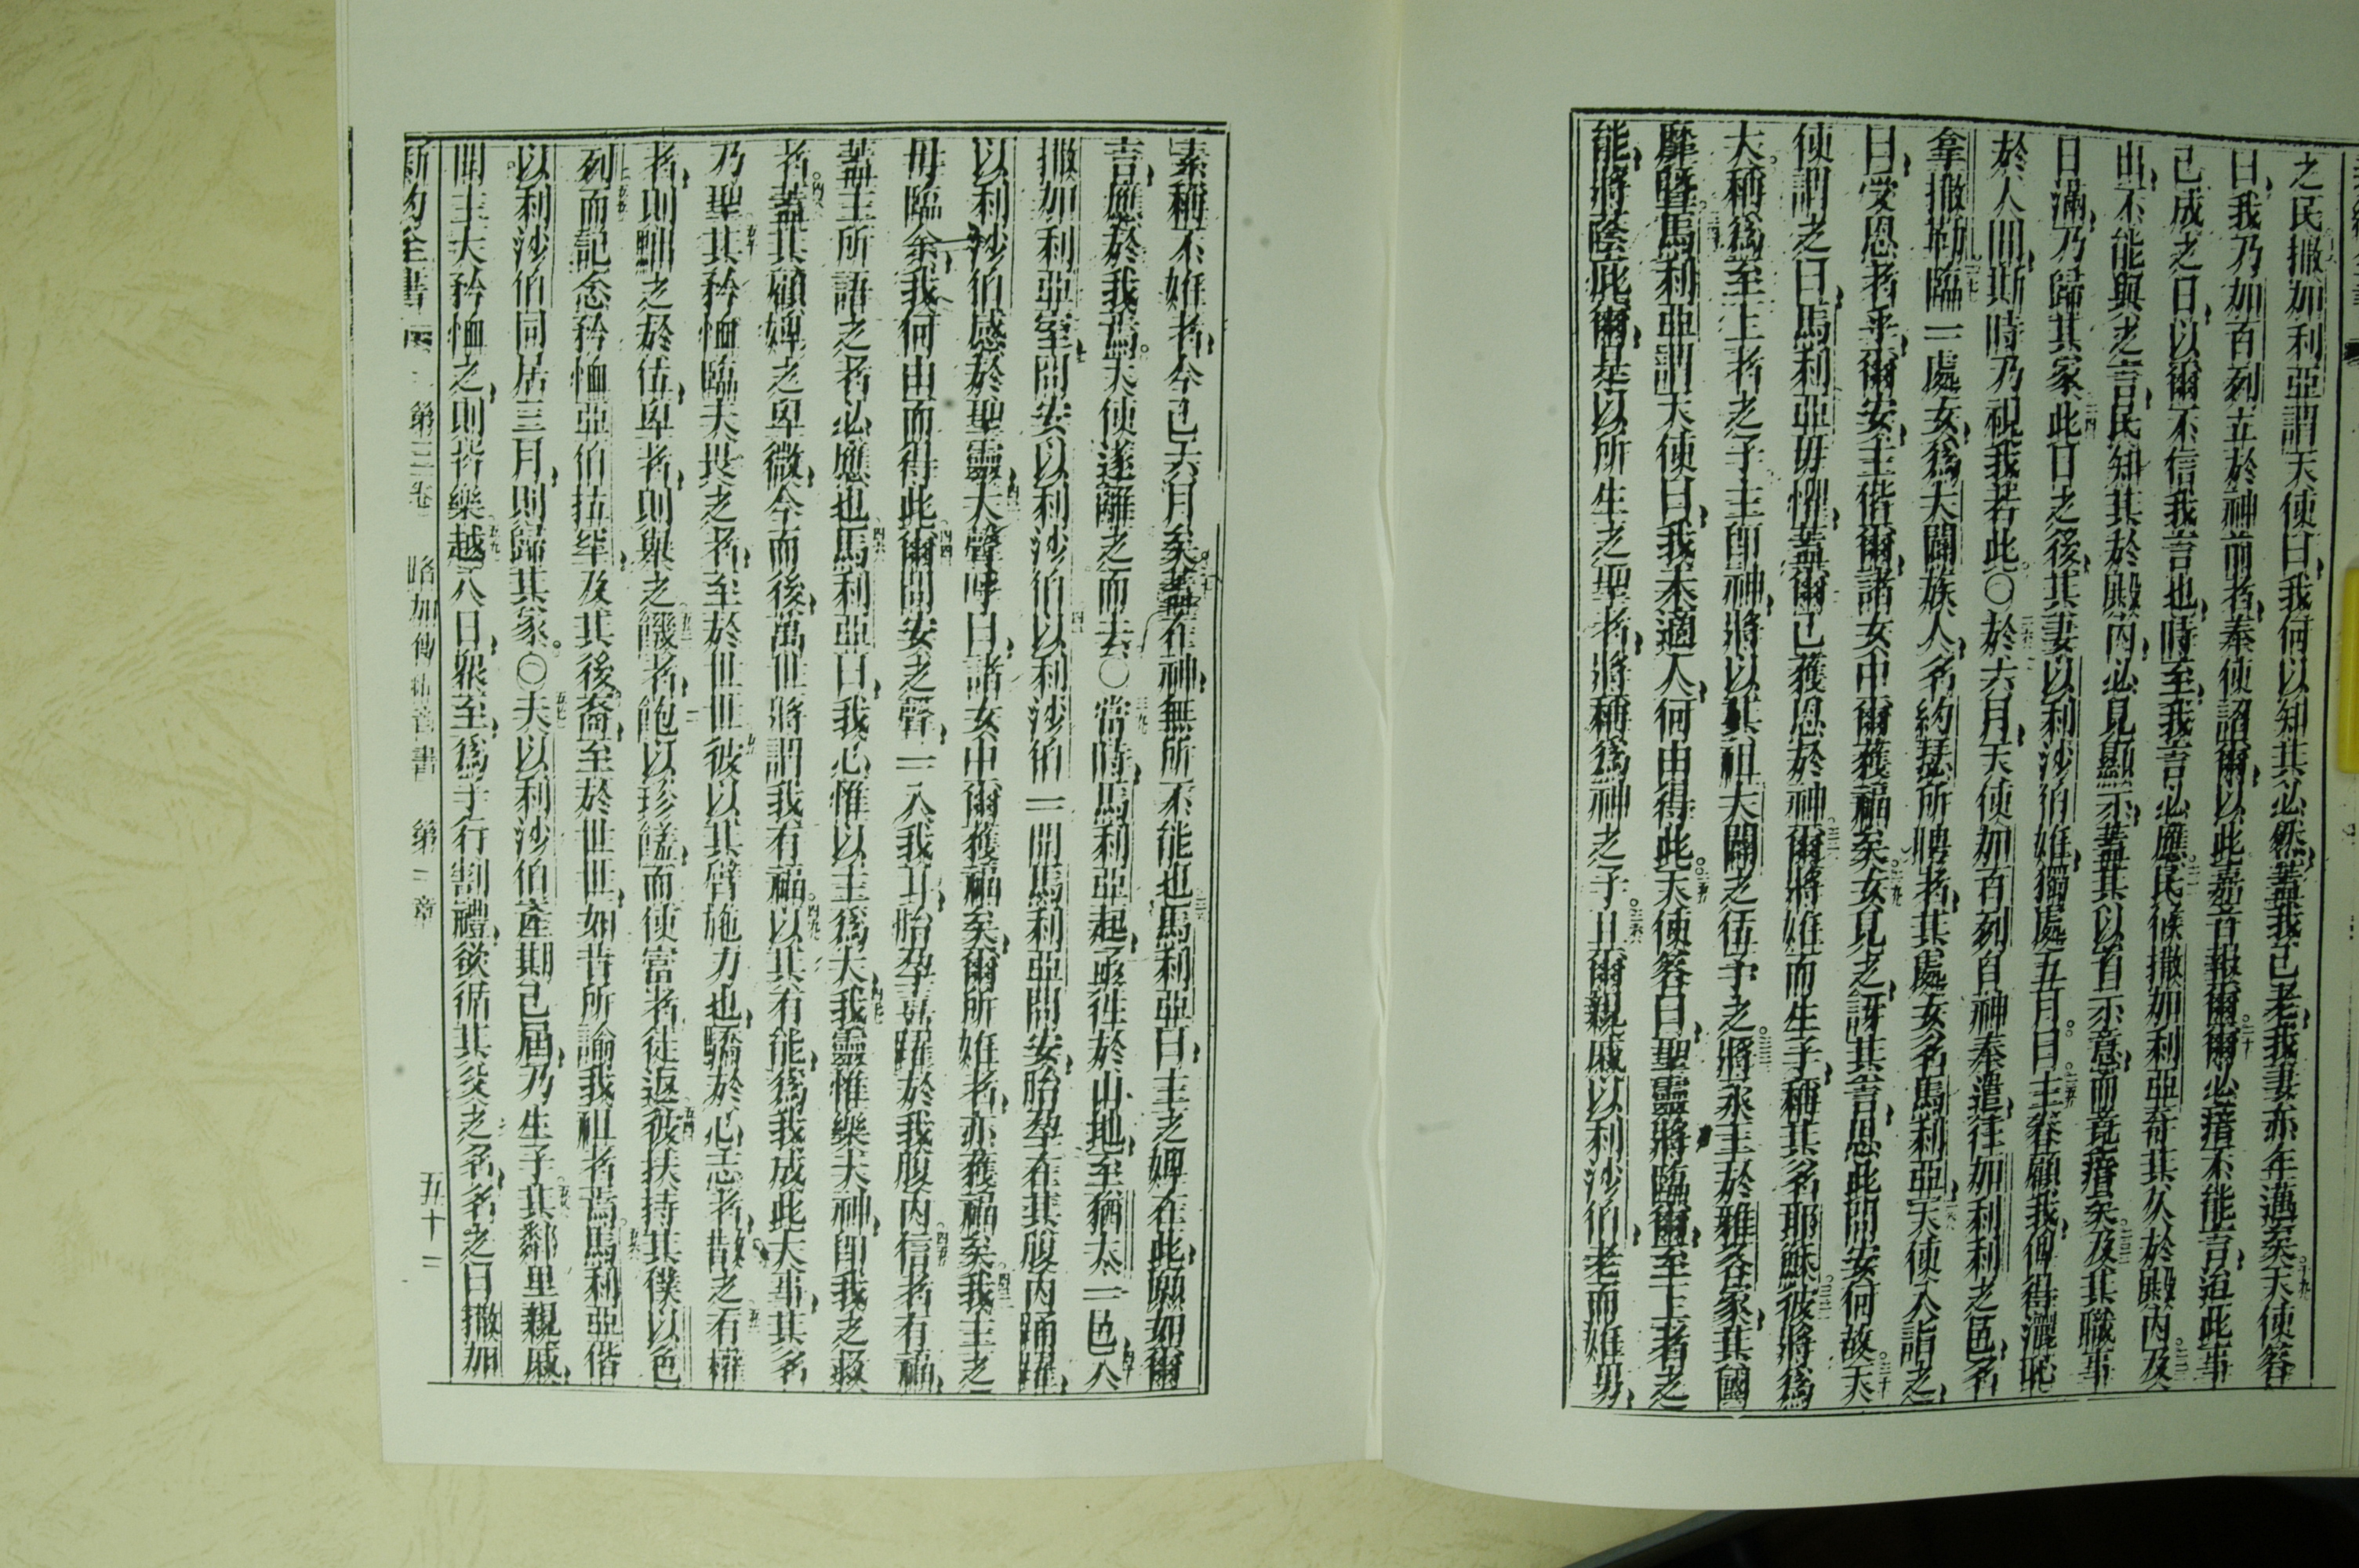 之民撒加利亞謂天使曰我何以知其必然蓋我已老我妻亦年邁矣天使答
曰我乃加百列立於神前者奉使詔爾以此嘉音報爾爾必瘖不能言迨此事
已成之日以爾不信我言也時至我言必應民候撒加利亞奇其久於殿內及
出不能與之言民知其於殿內必見顯示蓋其以首示意而竟瘖矣及其職事
日滿乃歸其家此日之後其妻以利沙伯妊獨處五月曰主眷顧我俾得灑恥
於人間斯時乃視我若此〇於六月天使加百列自神奉遣往加利利之邑名
拿撒勒臨一處女為大闢族人名約瑟所聘者其處女名馬利亞天使入詣之
曰受恩者乎爾安主偕爾諸女中爾獲福矣女見之訝其言思此問安何故天
使謂之曰馬利亞毋懼蓋爾已獲恩於神爾將妊而生子稱其名耶穌彼將為
大稱為至上者之子主即神將以其祖大闢之位予之將永主於雅各家其國
靡曁馬利亞謂天使曰我未適人何由得此天使答曰聖靈將臨爾至上者之
能將蔭此爾是以所生之聖者將稱為神之子且爾親戚以利沙伯老而妊男
素稱不妊者今已六月矣蓋在神無所不能也馬利亞曰主之婢在此願如爾
言應於我焉天使遂離之而去〇當時馬利亞起亟往於山地至猶太一邑入
撒加利亞室問安以利沙伯以利沙伯一聞馬利亞問安胎孕在其腹內踊躍
以利沙伯感於聖靈大聲呼曰諸女中爾獲福矣爾所妊者亦獲福矣我主之
母臨余我何由而得此爾問安之聲一入我耳胎孕喜躍於我腹內信者有福
蓋主所語之者必應也馬利亞曰我心惟以主為大我靈惟樂夫神即我之救
者蓋其顧婢之卑微今而後萬世將謂我有福以其有能為我成此大事其名
乃聖其矜恤臨夫畏之者至於世世彼以其臂施力也驕於心志者散之有權
者則黜之於位卑者則舉之饑者飽以珍饈而使富者徒返彼扶持其僕以色
列而記念矜恤亞伯拉罕及其後裔至於世世如昔所諭我祖者焉馬利亞偕
以利沙伯同居三月則歸其家〇夫以利沙伯產期已屆乃生子其鄰里親戚
聞主大矜恤之則皆樂越八日眾至為子行割禮欲循其父之名名之曰撒加
新約全書 第三卷 路加傳福音書 第一章 五十二